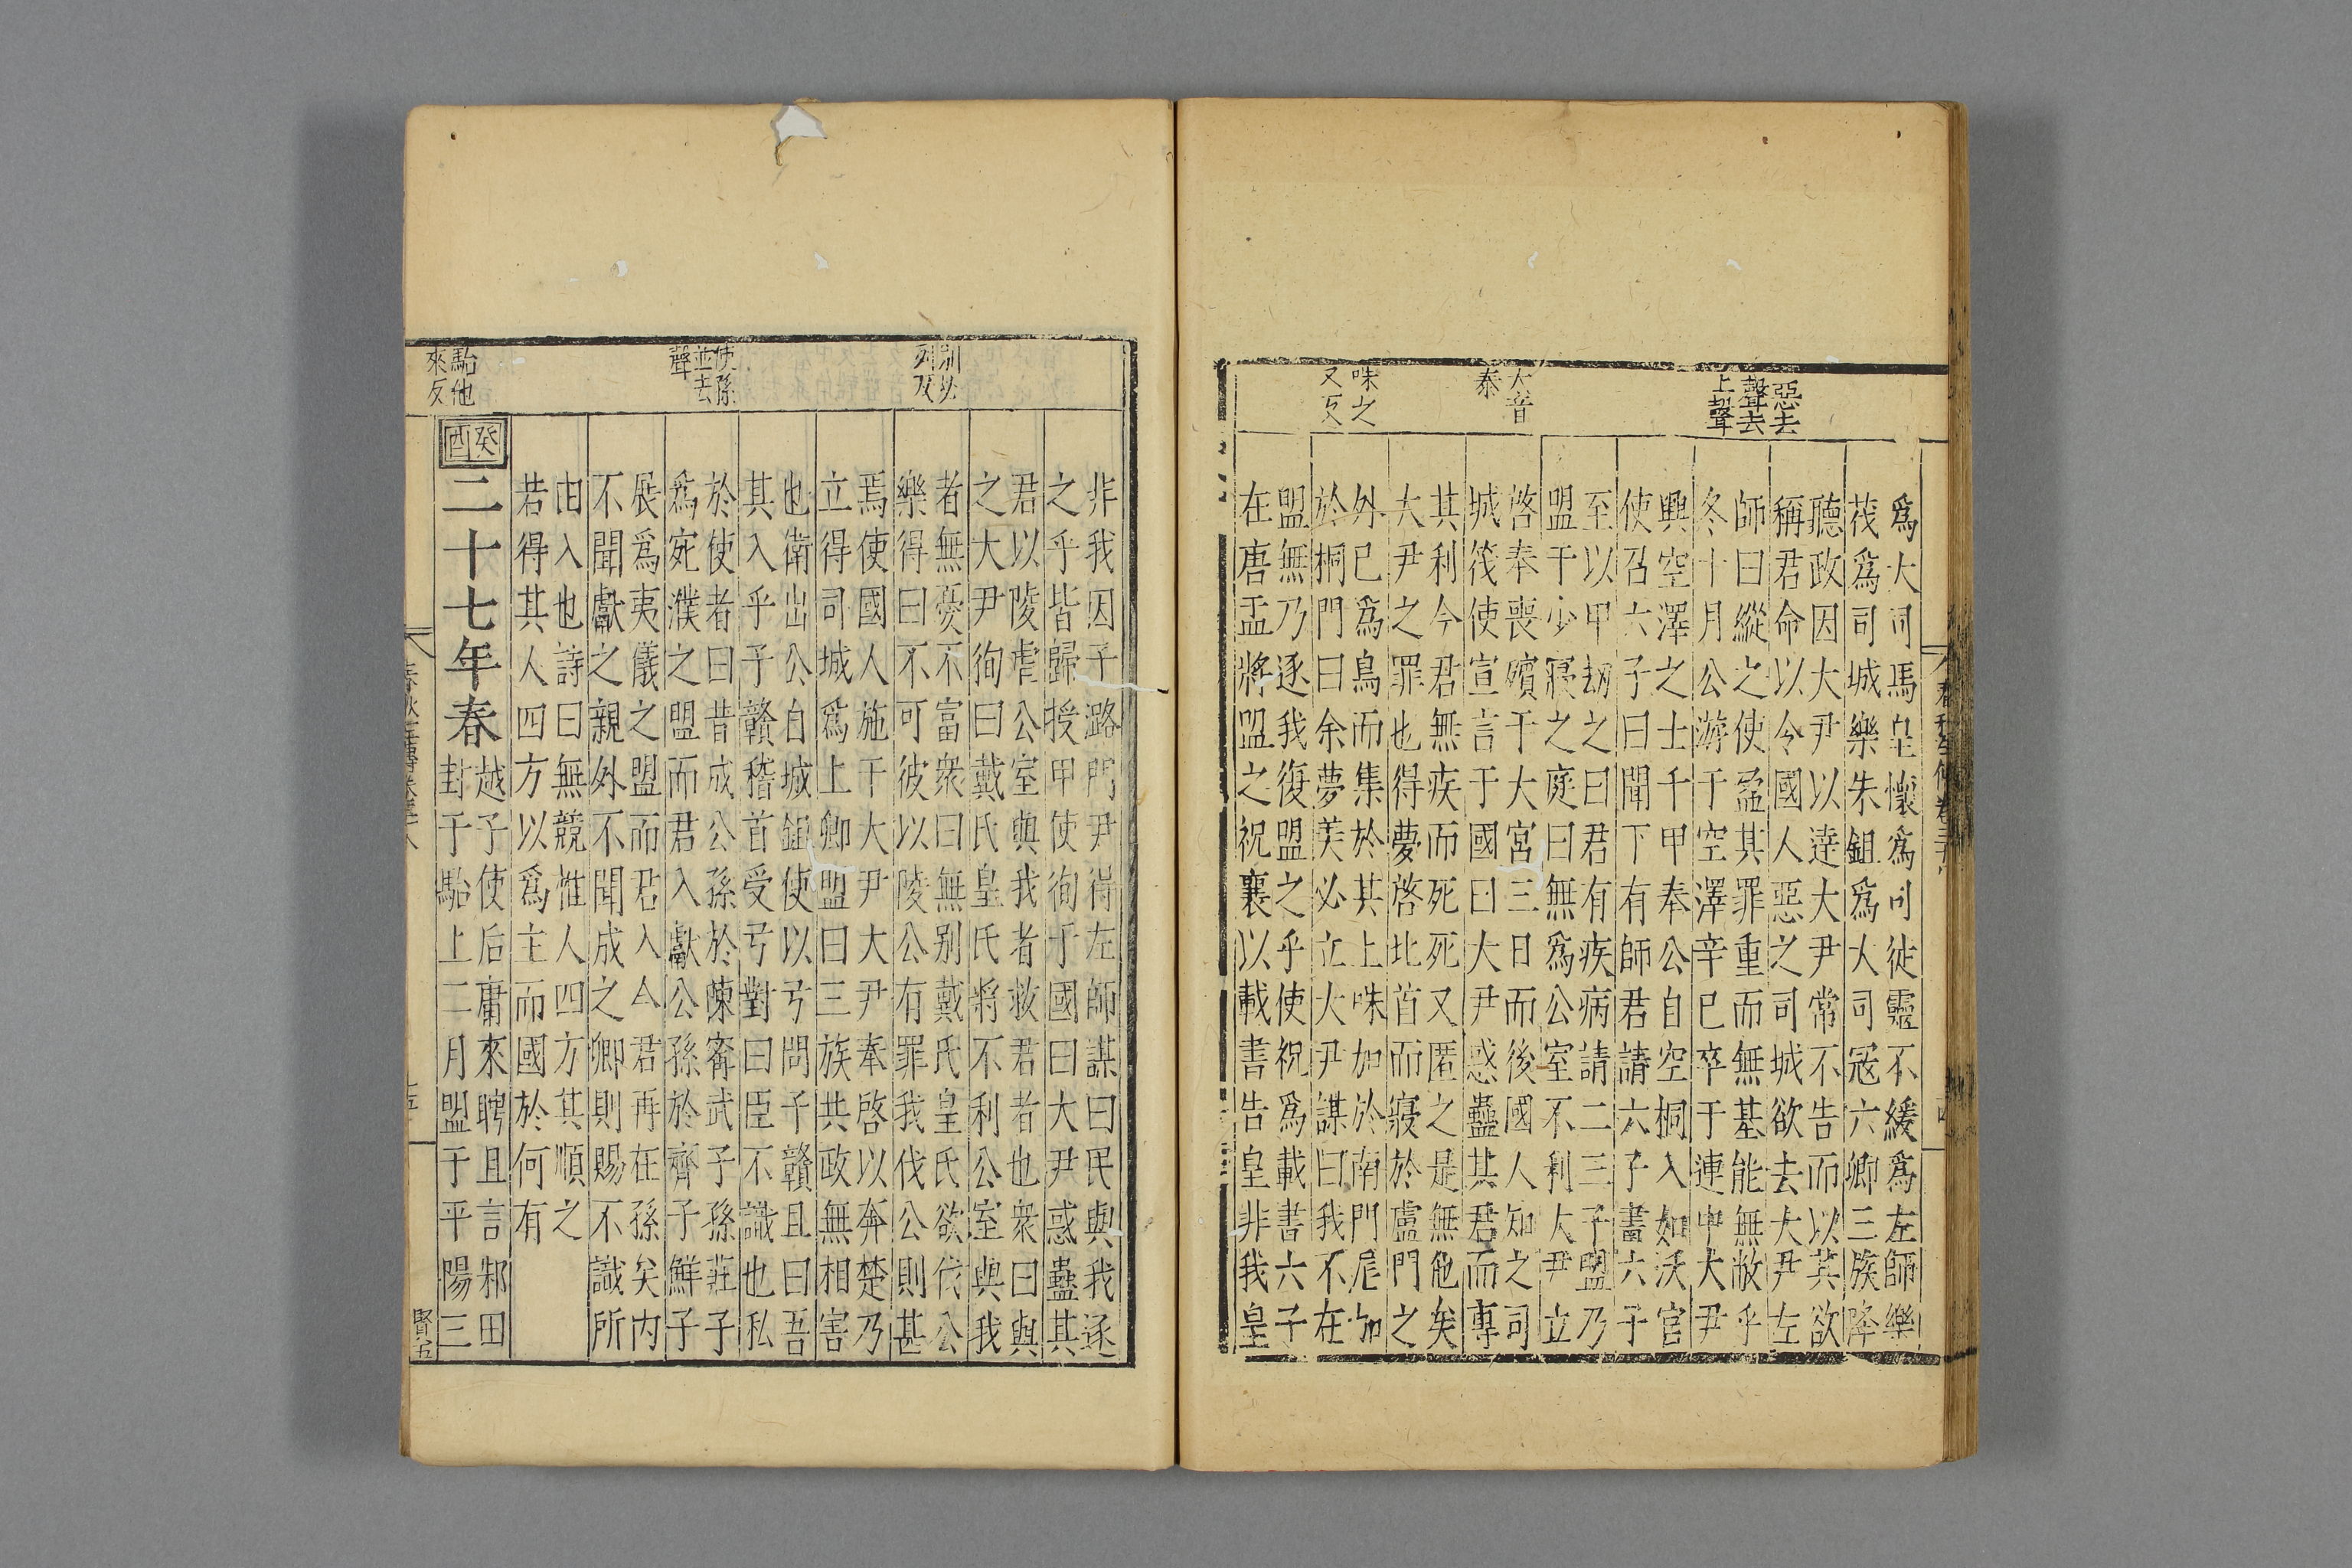 惡去
聲去
上聲
大音
泰
咮之
又反
爲大司馬皇懷爲司徒靈不緩爲左師樂
茷爲司城樂朱鉏爲大司寇六卿三族降
聽政因大尹以達大尹常不告而以其欲
稱君命以令國人惡之司城欲去大尹左
師曰縱之使盈其罪重而無基能無敝乎
冬十月公游于空澤辛巳卒于連中大尹
興空澤之士千甲奉公自空桐入如沃宮
使召六子曰聞下有師君請六子畫六子
至以甲劫之曰君有疾病請二三子盟乃
盟于少寢之庭曰無爲公室不利大尹立
啓奉喪殯于大宮三日而後國人知之司
城茷使宣言于國曰大尹惑蠱其君而專
其利今君無疾而死死又匿之是無他矣
大尹之罪也得夢啓北首而寢於盧門之
外已爲鳥而集於其上咮加於南門尾加
於桐門曰余夢美必立大尹謀曰我不在
盟無乃逐我復盟之乎使祝爲載書六子
在唐盂將盟之祝襄以載書告皇非我皇
別必
列反
使孫
並去
聲
駘他
來反
非我因子潞門尹得左師謀曰民與我逐
之乎皆歸授甲使徇于國曰大尹惑蠱其
君以陵虐公室與我者救君者也衆曰與
之大尹徇曰戴氏皇氏將不利公室與我
者無憂不富衆曰無別戴氏皇氏欲伐公
樂得曰不可彼以陵公有罪我伐公則甚
焉使國人施于大尹大尹奉啓以奔楚乃
立得司城爲上卿盟曰三族共政無相害
也衛出公自城鉏使以弓問子贛且曰吾
其入乎子贛稽首受弓對曰臣不識也私
於使者曰昔成公孫於陳甯武子孫莊子
爲宛濮之盟而君入獻公孫於齊子鮮子
展爲夷儀之盟而君入今君再在孫矣內
不聞獻之親外不聞成之卿則賜不識所
由入也詩曰無競惟人四方其順之
若得其人四方以爲主而國於何有
癸酉
二十七年春
越子使后庸來聘且言邾田
封于駘上二月盟于平陽三
賢五